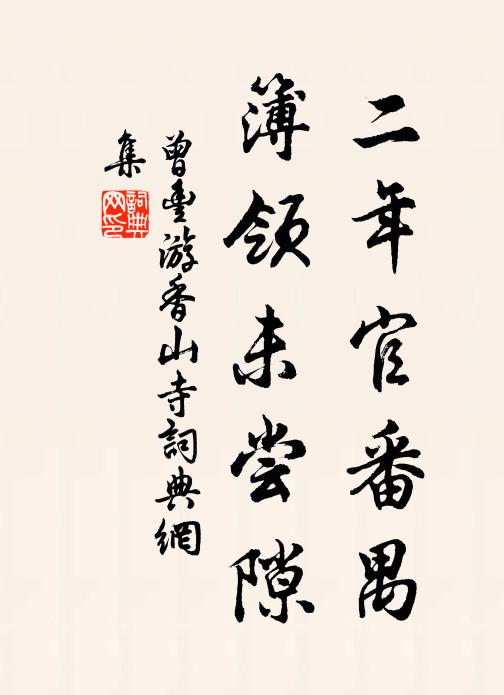 二年官番禺
簿领未尝隙
曾丰游香山寺詞典網
集
詞典
网印